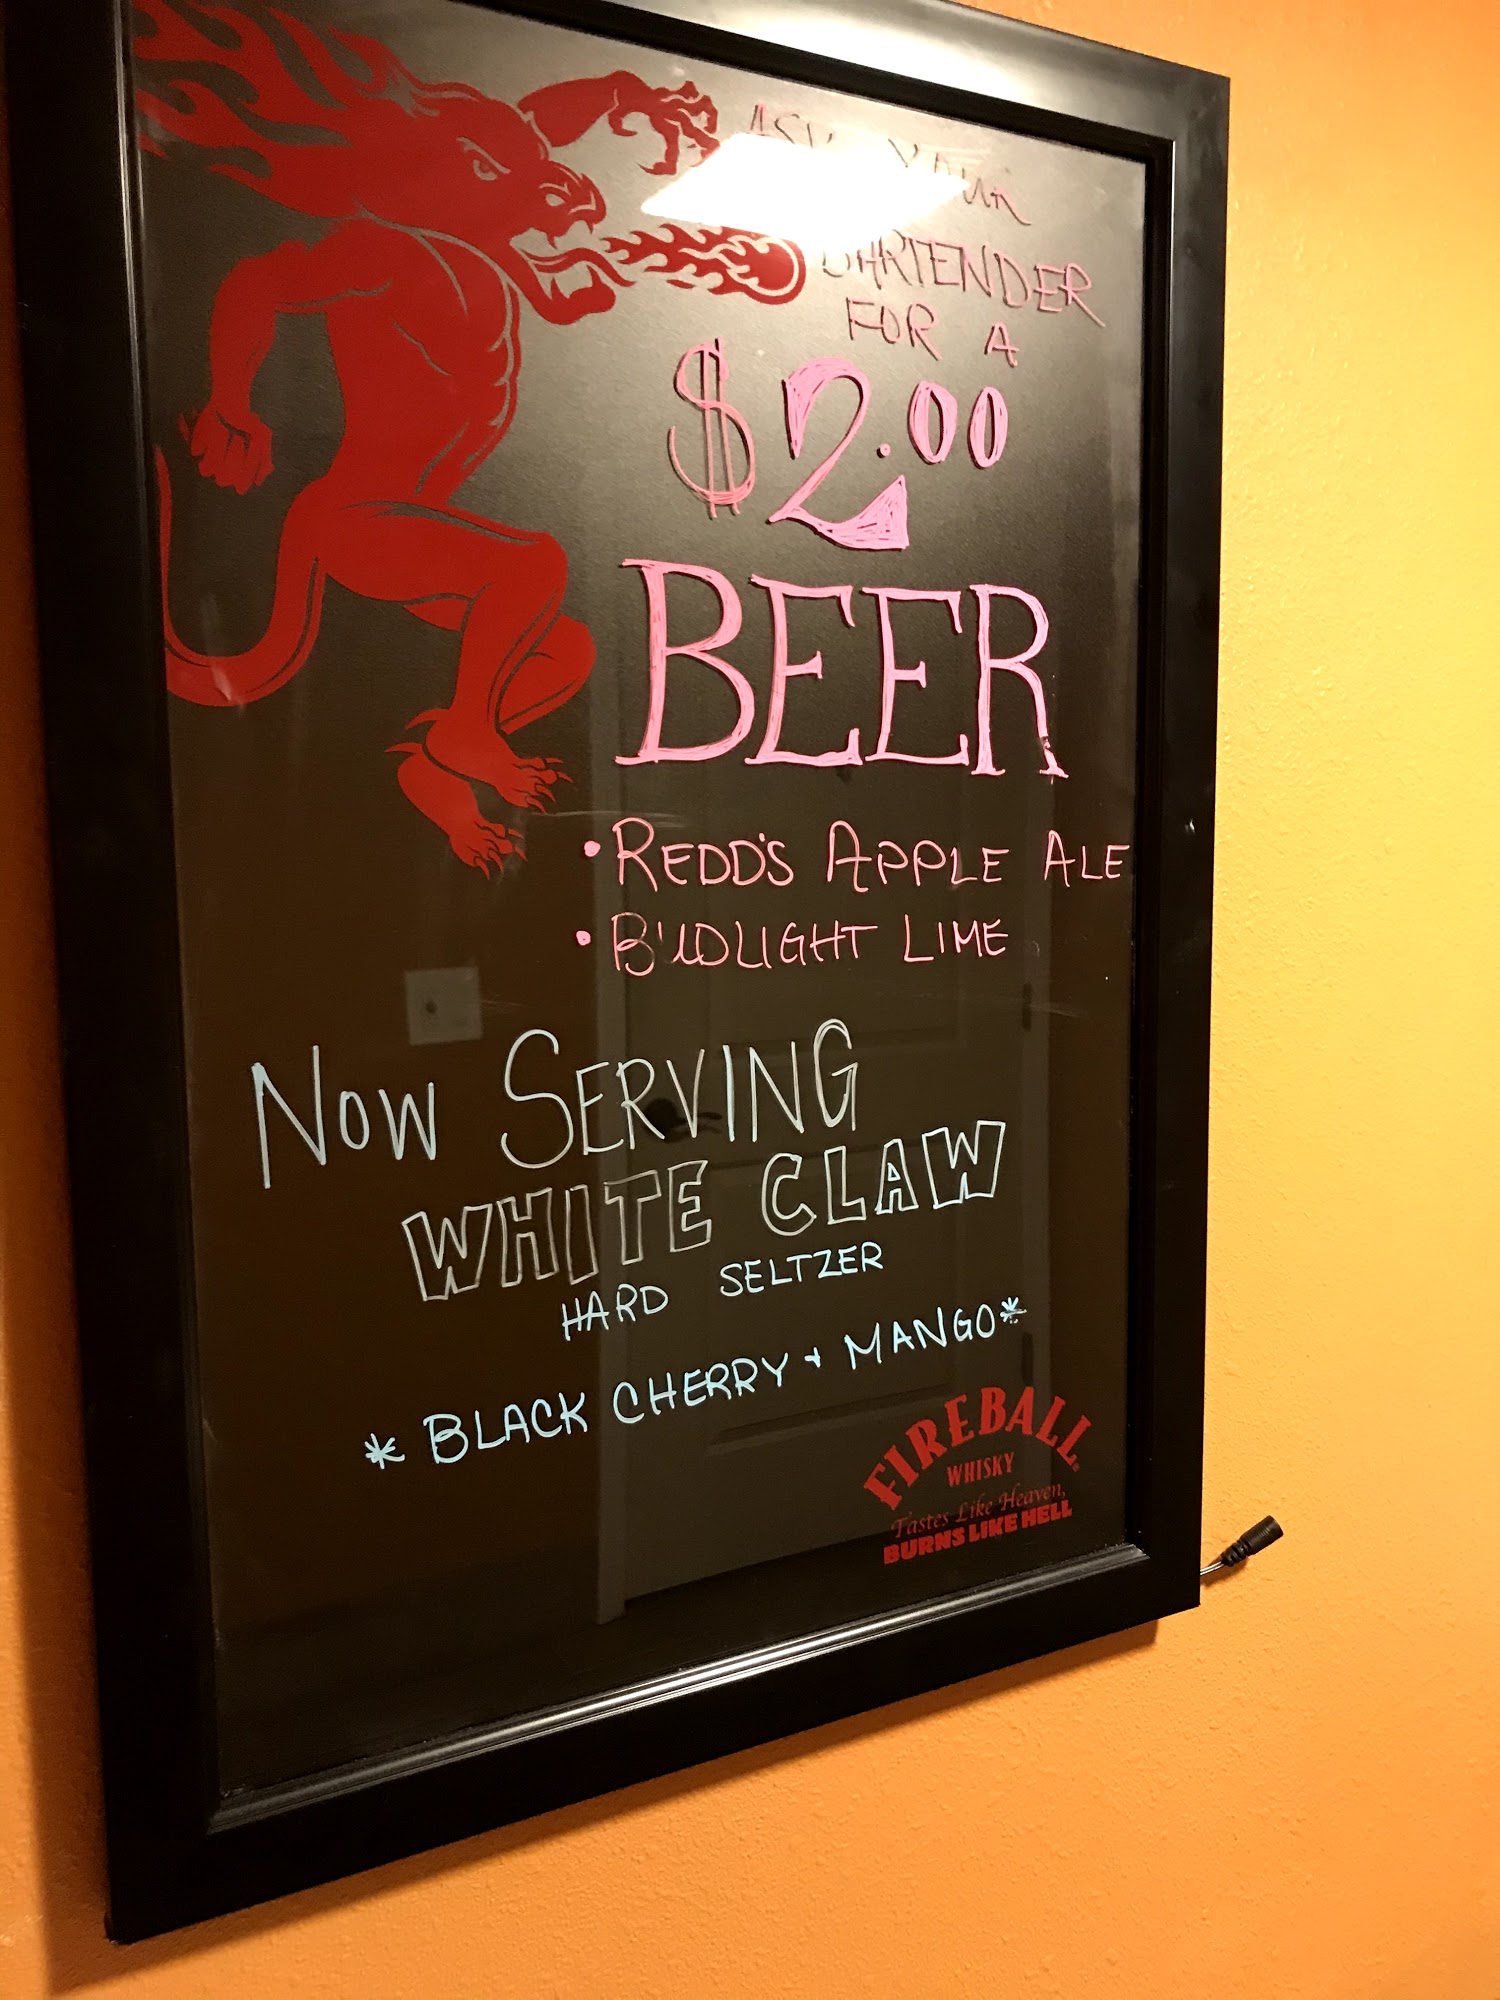 ASK YOUR
BARTENDER
FOR A
$2.00
BEER
• REDD'S APPLE ALE
• BUDLIGHT LIME
NOW SERVING
WHITE CLAW
HARD SELTZER
* BLACK CHERRY + MANGO *
FIREBALL
WHISKY
Tastes Like Heaven,
BURNS LIKE HELL